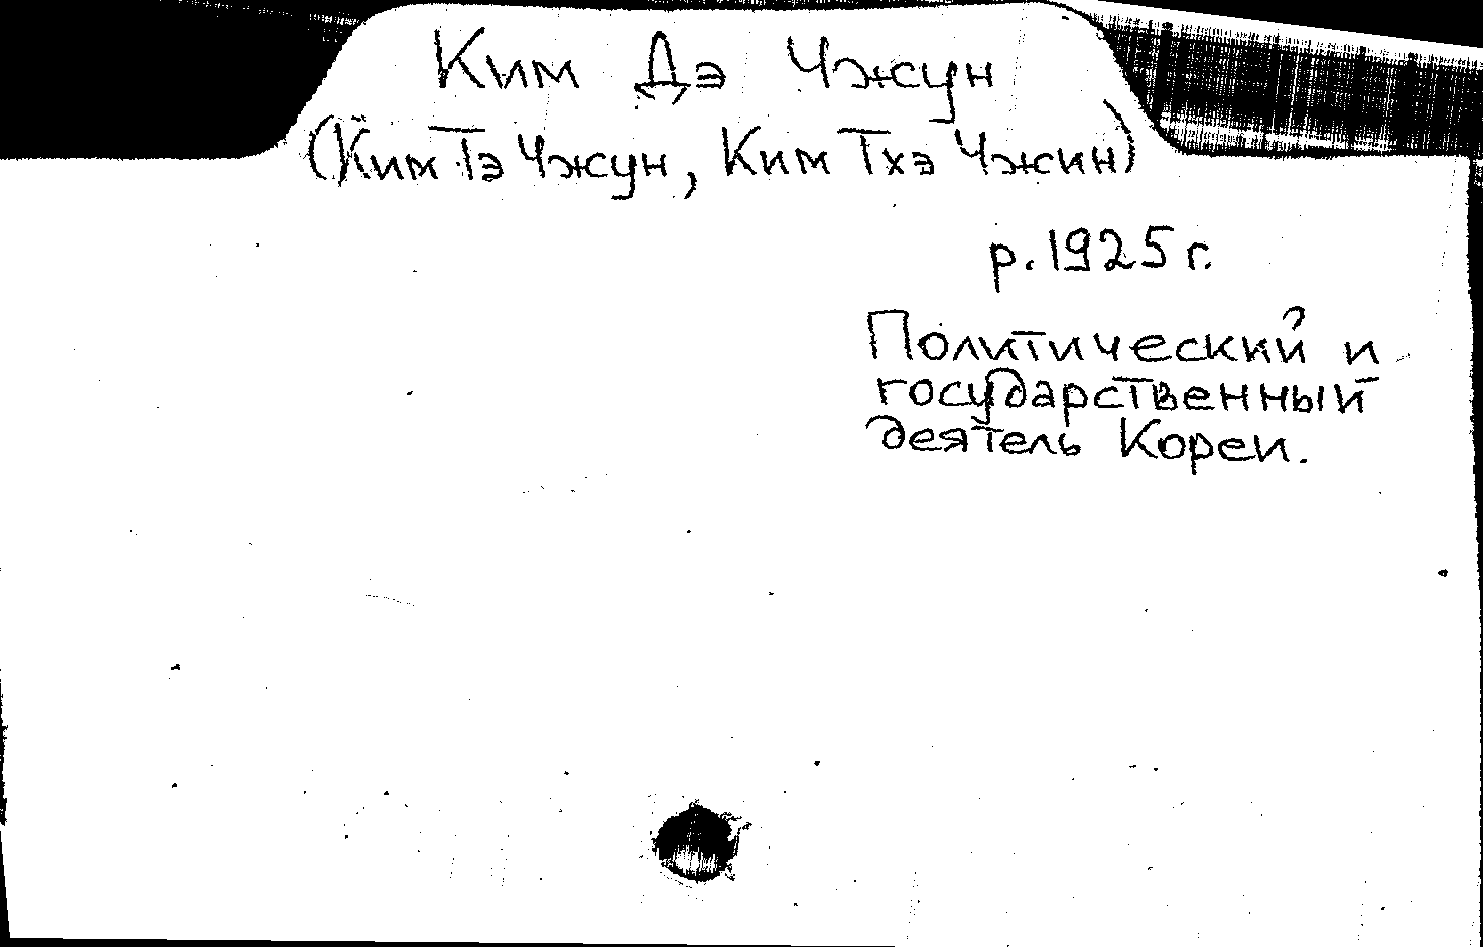 Ким Дэ Чжун
(Ким Тэ Чжун, Ким Тхэ Чжин)
р. 1925 г.
Политический и
государственный
деятель Кореи.